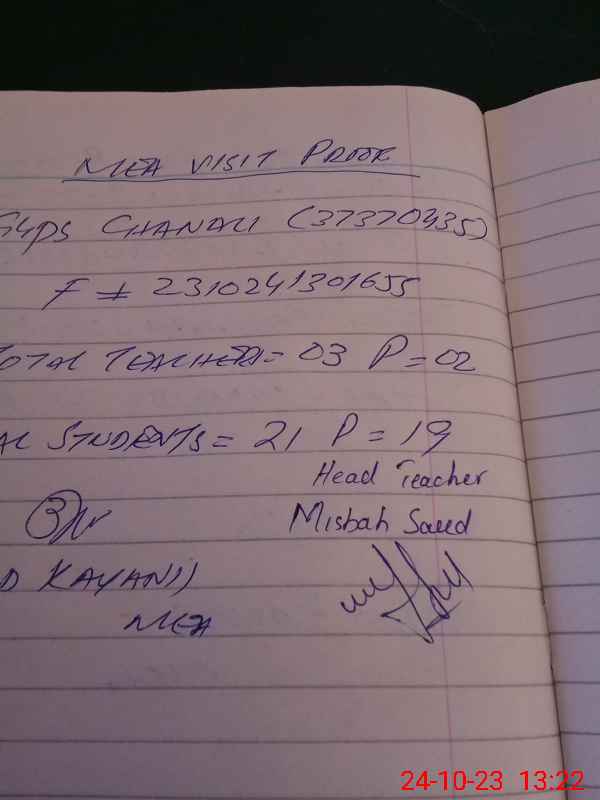 MEA VISIT PROOF
GGPS CHANALI (37370435)
F # 2310241301655
TOTAL TEACHERS = 03 P = 02
AL STUDENTS = 21 P = 19
Head Teacher
Misbah Saeed
D KAYANI)
MEA
24-10-23 13:22